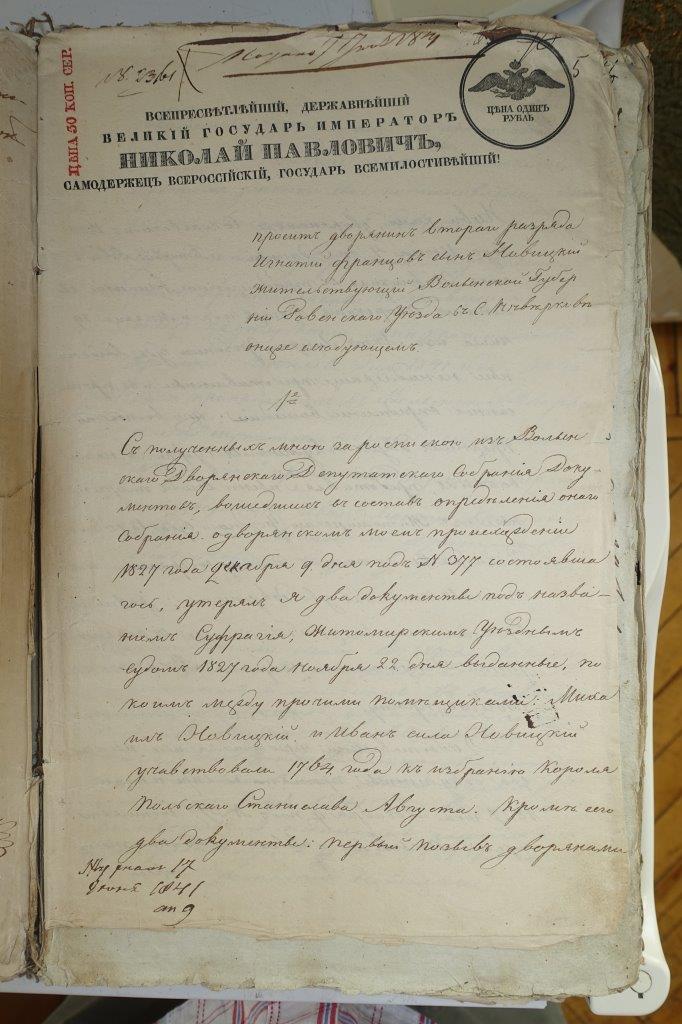 № 2361
5
ЦѢНА 50 КОП. СЕР.
ЦѢНА ОДИНЪ
РУБЛЬ
ВСЕПРЕСВѢТЛѢЙШІЙ, ДЕРЖАВНѢЙШІЙ
ВЕЛИКІЙ ГОСУДАРЬ ИМПЕРАТОРЪ
НИКОЛАЙ ПАВЛОВИЧЪ,
САМОДЕРЖЕЦЪ ВСЕРОССІЙСКІЙ, ГОСУДАРЬ ВСЕМИЛОСТИВѢЙШІЙ!
проситъ дворянинъ втораго разряда
Игнатій Францовъ сынъ Новицкій
жительствующій Волынской Губер
ніи Ровенскаго Уѣзда въ С.
о нижеслѣдующемъ.
1е
Съ полученныхъ мною за роспискою изъ Волын
скаго Дворянскаго Депутатскаго Собранія Доку-
ментовъ, вошедшихъ въ составъ опредѣленія онаго
Собранія о дворянскомъ моемъ происхожденіи
1827 года Декабря 9 дня подъ N 377 состоявша
гось, утерялъ я два документа подъ назва-
ніемъ Суфрагія, Житомирскимъ Уѣзднымъ
Судомъ 1827 года ноября 22 дня выданные, по
коимъ между прочими помѣщиками: Миха
илъ Новицкій и Иванъ сила Новицкій
участвовали 1764 года къ избранію Короля
Польскаго Станислава Августа. Кромѣ сего
два документа: первый позывъ дворянами
17
Іюня 1841